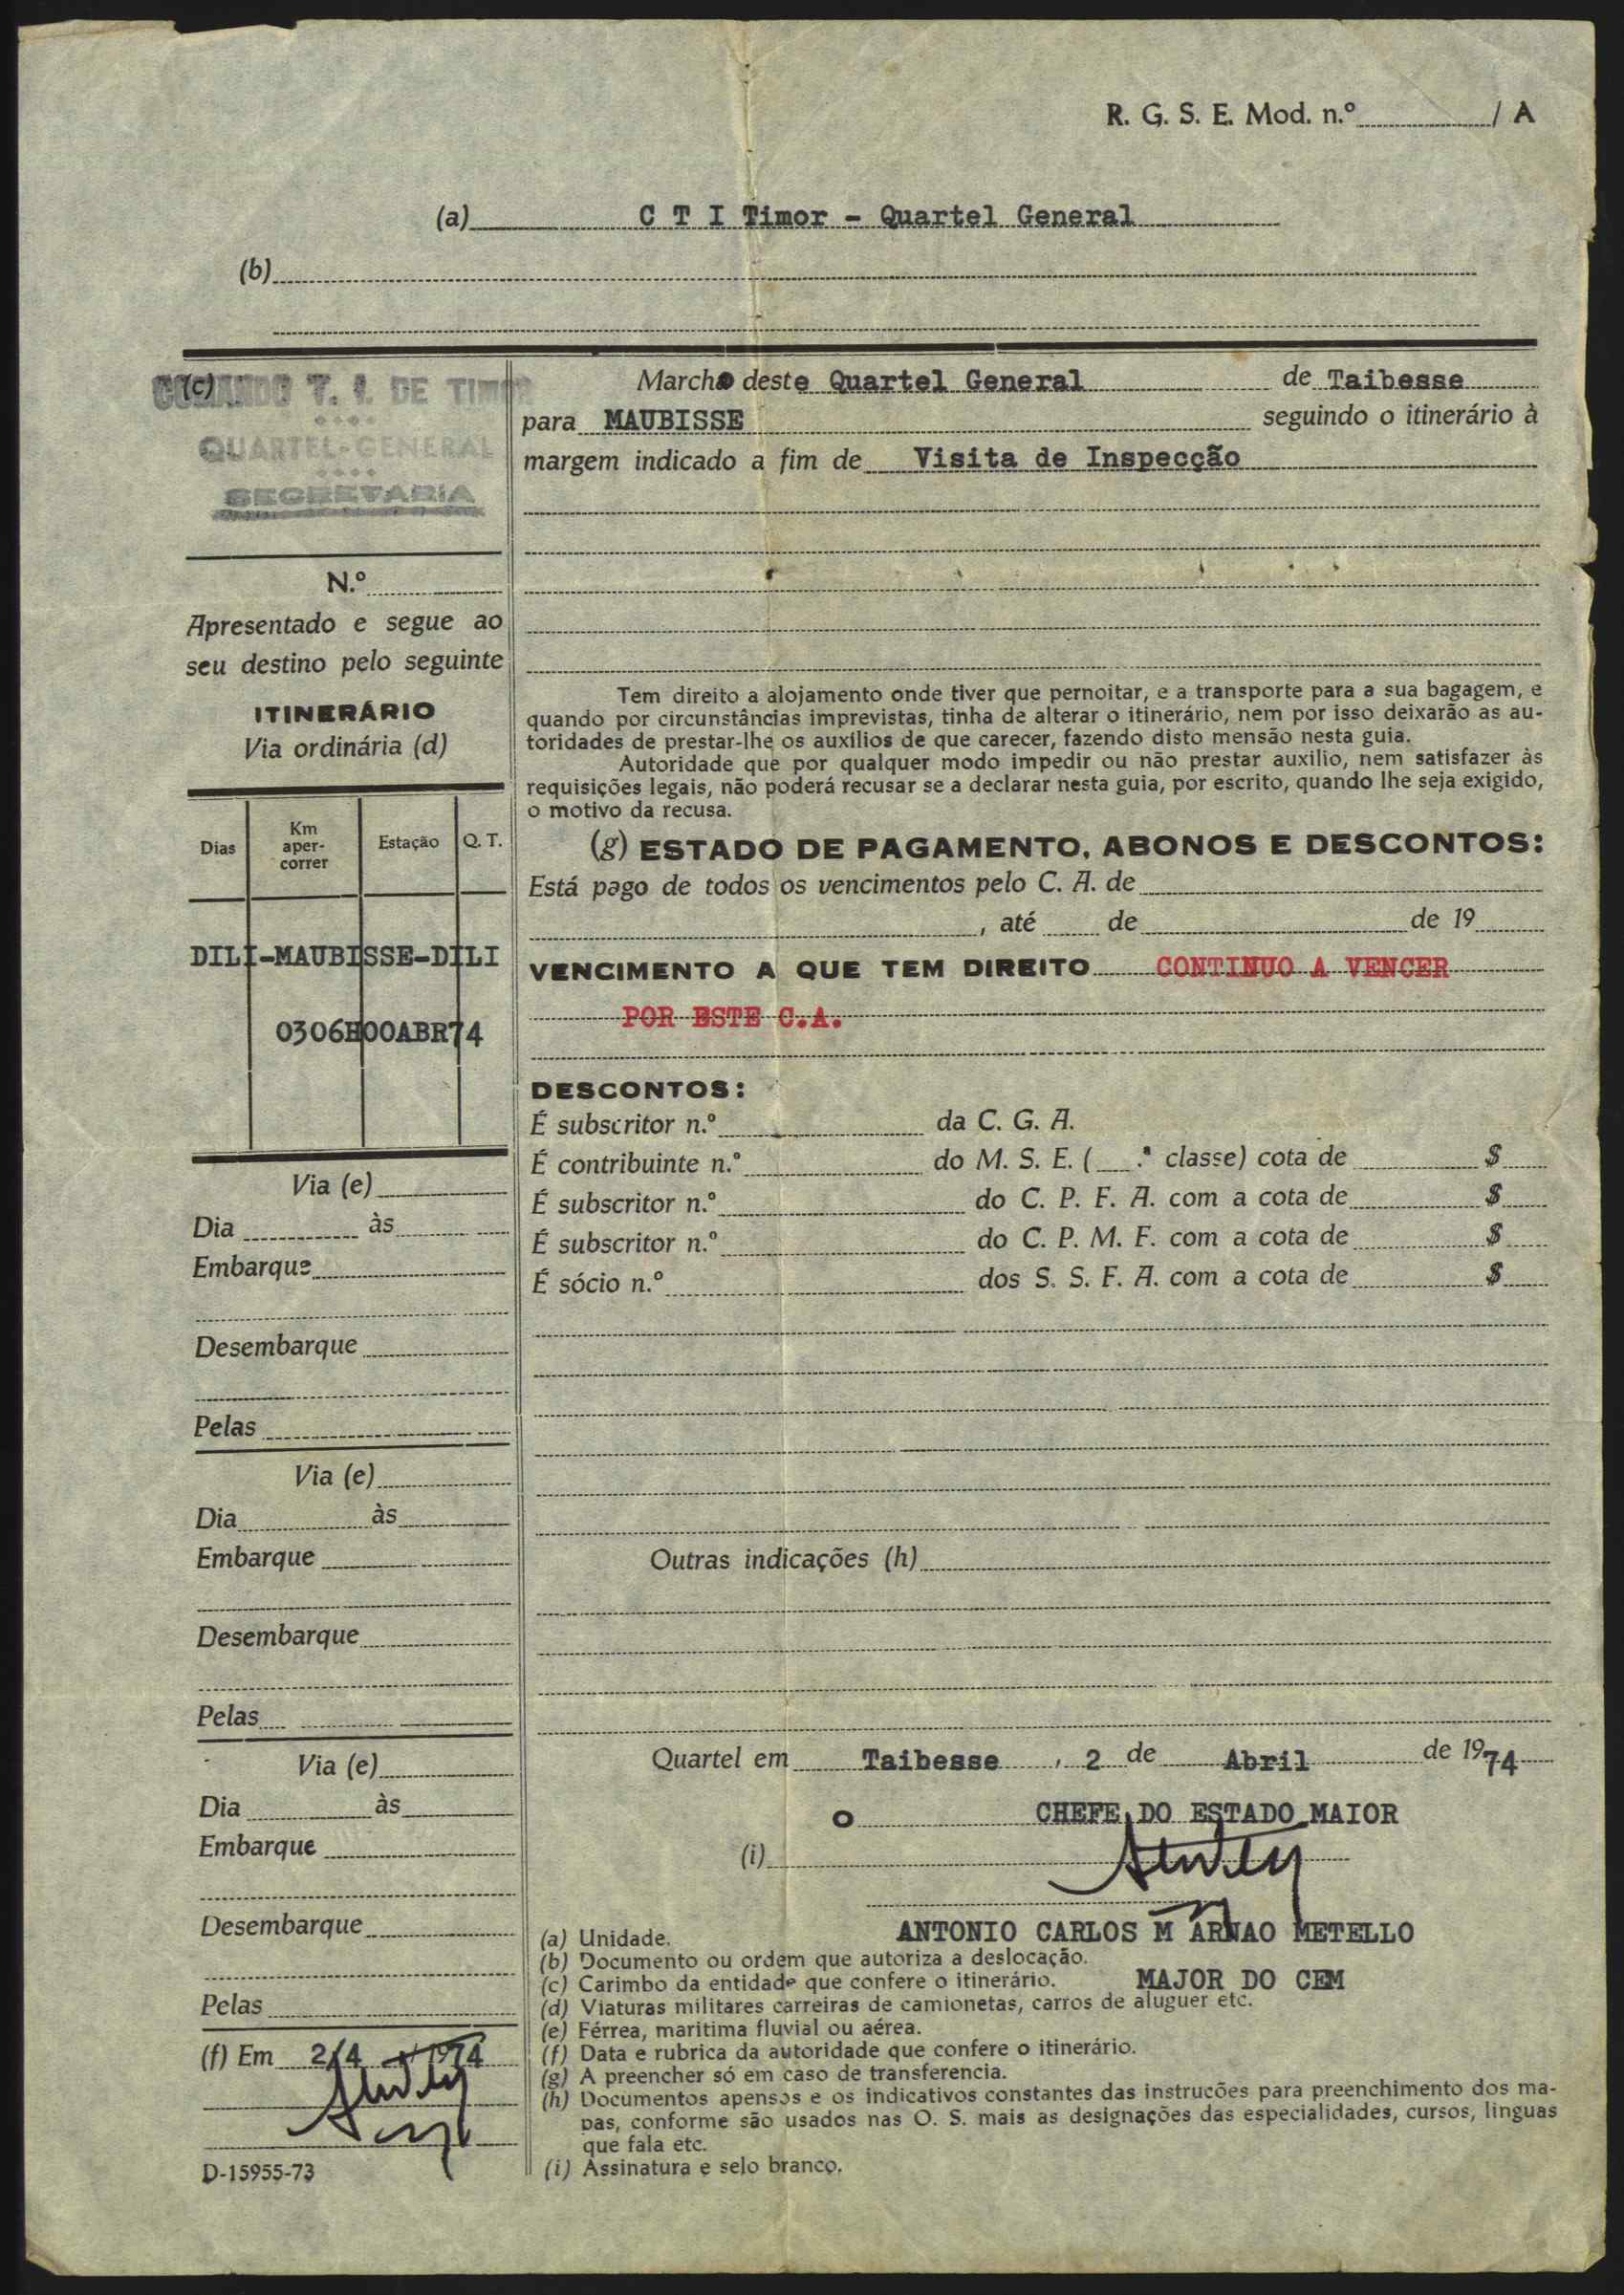 R. G. S. E. Mod. n.º / A
(a) C T I Timor - Quartel General
(b)
(c)
COMANDO T. I. DE TIMOR
QUARTEL-GENERAL
SECRETARIA
N.º
Apresentado e segue ao
seu destino pelo seguinte
ITINERÁRIO
Via ordinária (d)
Dias Km aper-correr Estação Q. T.
DILI-MAUBISSE-DILI
0306H00ABR74
Via (e)
Dia às
Embarque
Desembarque
Pelas
Via (e)
Dia às
Embarque
Desembarque
Pelas
Via (e)
Dia às
Embarque
Desembarque
Pelas
(f) Em 2/4 / 1974
D-15955-73
Marcho deste Quartel General de Taibesse
para MAUBISSE seguindo o itinerário à
margem indicado a fim de Visita de Inspecção
Tem direito a alojamento onde tiver que pernoitar, e a transporte para a sua bagagem, e
quando por circunstâncias imprevistas, tinha de alterar o itinerário, nem por isso deixarão as au-
toridades de prestar-lhe os auxílios de que carecer, fazendo disto mensão nesta guia.
Autoridade que por qualquer modo impedir ou não prestar auxilio, nem satisfazer às
requisições legais, não poderá recusar se a declarar nesta guia, por escrito, quando lhe seja exigido,
o motivo da recusa.
(g) ESTADO DE PAGAMENTO, ABONOS E DESCONTOS:
Está pago de todos os vencimentos pelo C. A. de
, até de de 19
VENCIMENTO A QUE TEM DIREITO CONTINUO A VENCER
POR ESTE C.A.
DESCONTOS:
É subscritor n.º da C. G. A.
É contribuinte n.º do M. S. E. ( .ª classe) cota de $
É subscritor n.º do C. P. F. A. com a cota de $
É subscritor n.º do C. P. M. F. com a cota de $
É sócio n.º dos S. S. F. A. com a cota de $
Outras indicações (h)
Quartel em Taibesse , 2 de Abril de 1974
O CHEFE DO ESTADO MAIOR
(i)
ANTONIO CARLOS M ARNAO METELLO
MAJOR DO CEM
(a) Unidade.
(b) Documento ou ordem que autoriza a deslocação.
(c) Carimbo da entidade que confere o itinerário.
(d) Viaturas militares carreiras de camionetas, carros de aluguer etc.
(e) Férrea, maritima fluvial ou aérea.
(f) Data e rubrica da autoridade que confere o itinerário.
(g) A preencher só em caso de transferencia.
(h) Documentos apensos e os indicativos constantes das instrucões para preenchimento dos ma-
pas, conforme são usados nas O. S. mais as designações das especialidades, cursos, linguas
que fala etc.
(i) Assinatura e selo branco.